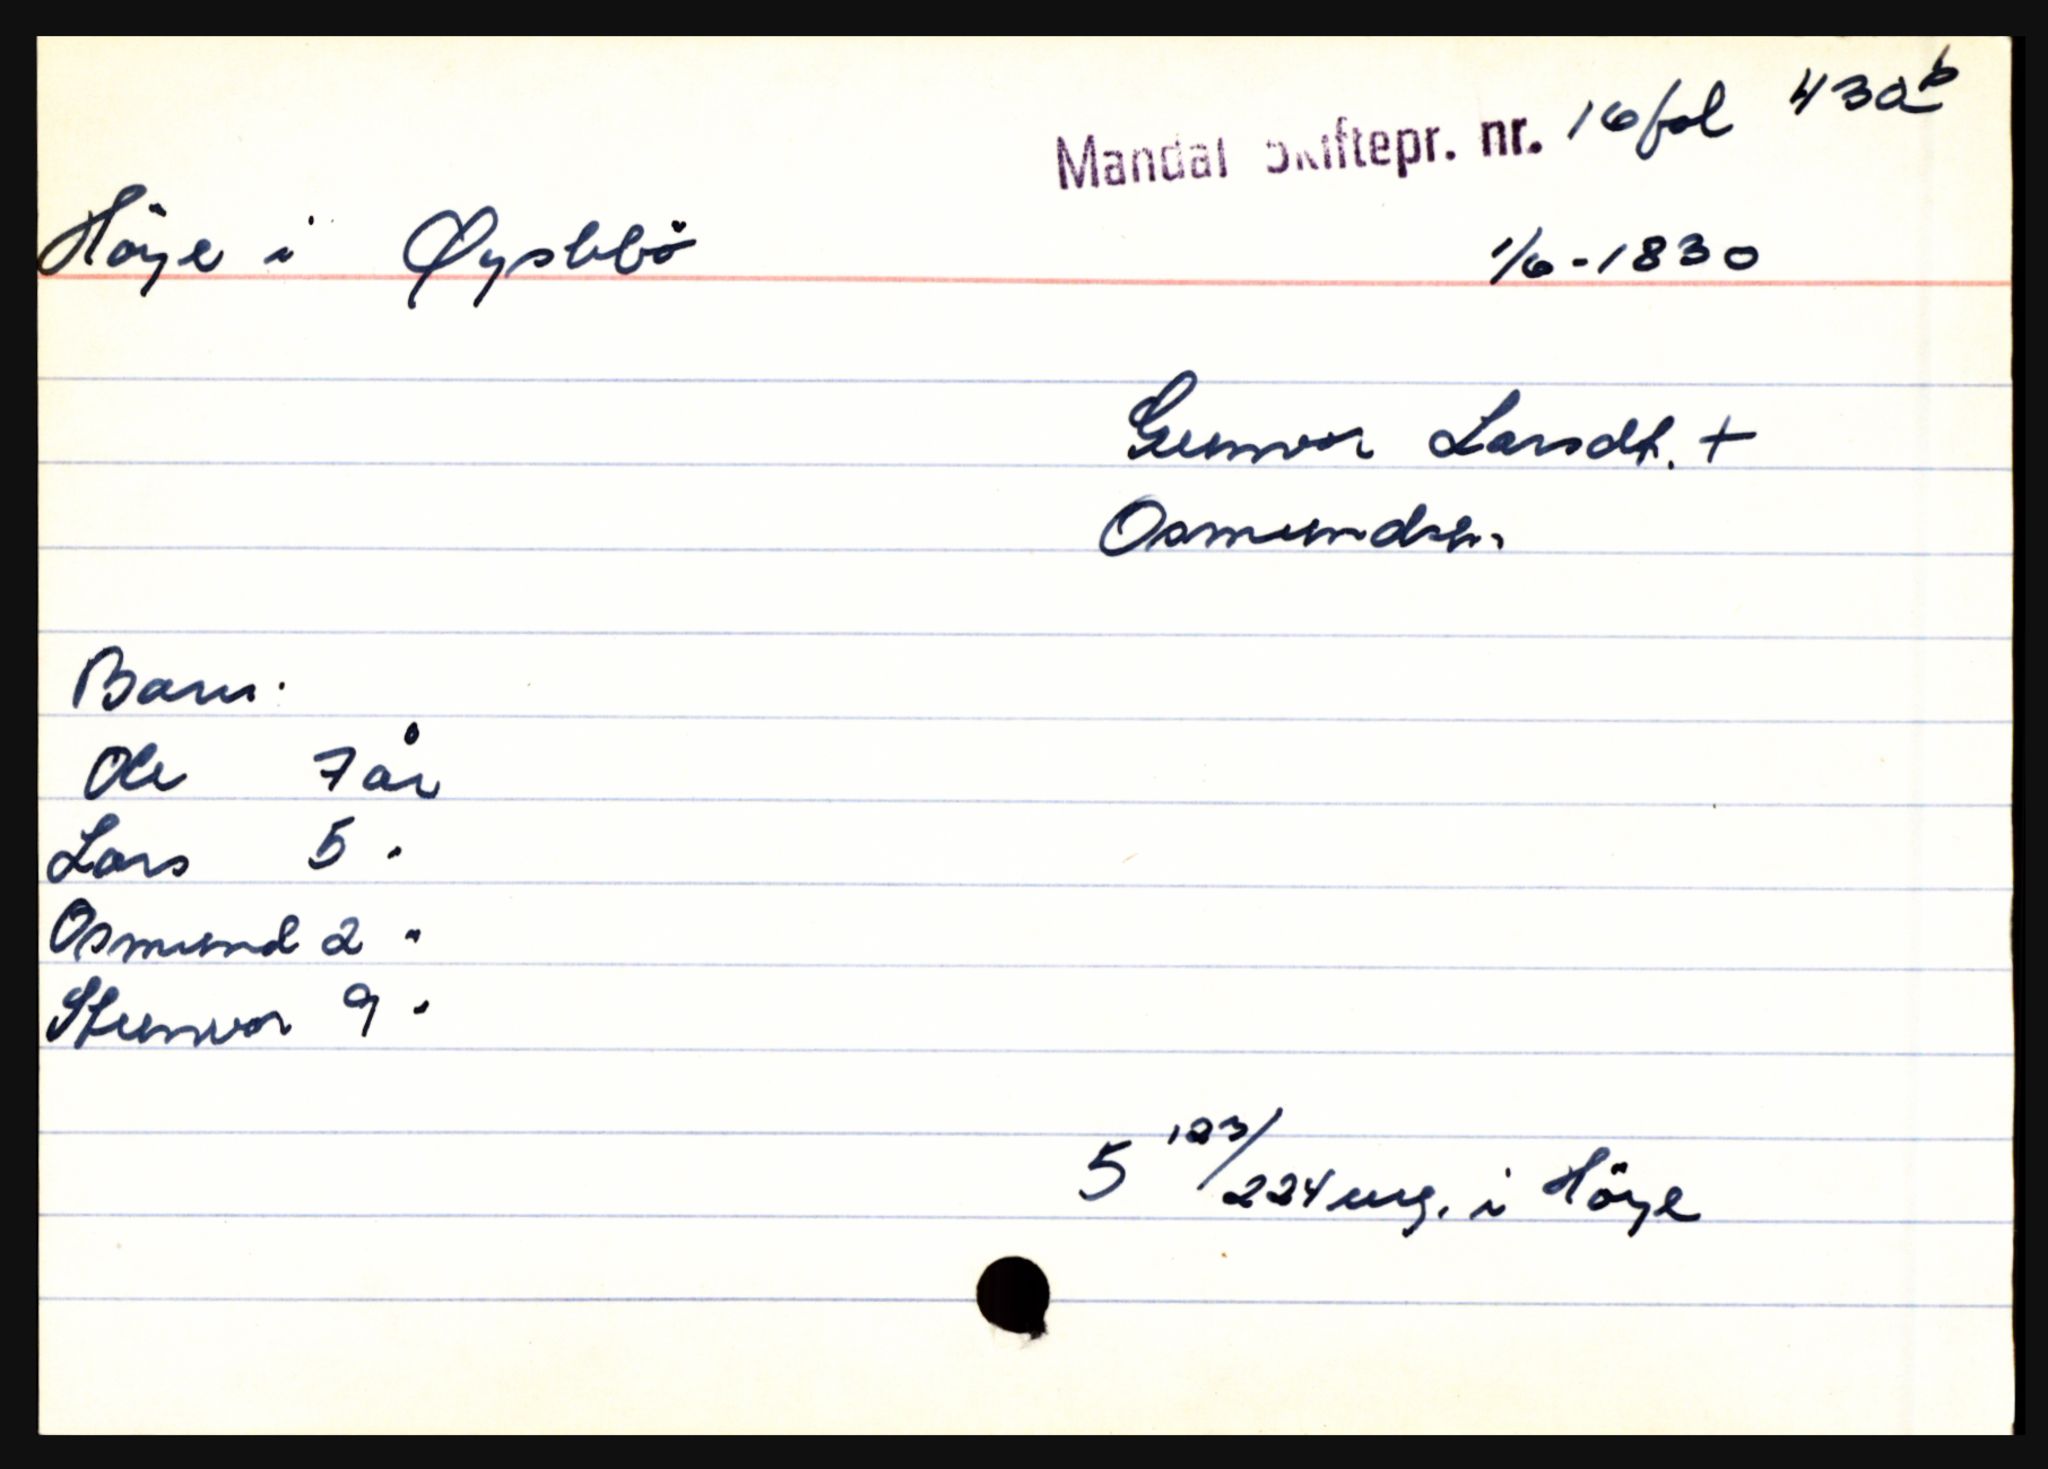 Mandal Skiftepr. nr. 16 fol 430b
Höye i Øyslebö 1/6-1830
Gunvor Larsdt. +
Osmundsh.
Barn:
Ole 7 år
Lars 5 "
Osmund 2 "
Stunvor 9 "
5 123/224 mrg. i Höye